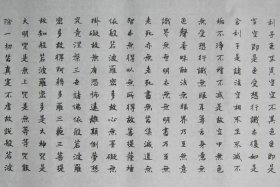 子色不異空空不異色色即是
空空即是色受想行識亦復如是
舍利子是諸法空相不生不滅不
垢不淨不增不減是故空中無色
無受想行識無眼耳鼻舌身意無
色聲香味觸法無眼界乃至無意
識界無無明亦無無明盡乃至無
老死亦無老死盡無苦集滅道無
智亦無得以無所得故菩提薩埵
依般若波羅蜜多故心無罣礙無
罣礙故無有恐怖遠離顛倒夢想
究竟涅槃三世諸佛依般若波羅
蜜多故得阿耨多羅三藐三菩提
故知般若波羅蜜多是大神咒是
大明咒是無上咒是無等等咒能
除一切苦真實不虛故說般若波